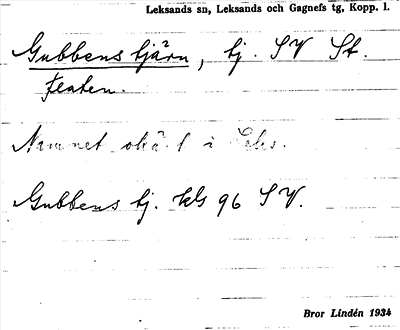 Leksands sn, Leksands och Gagnefs tg, Kopp. l.
Gubbens tjärn, tj. SV St.
Flaten.
Namnet okä t i Leks.
Gubbens tj. kbl 96 SV.
Bror Lindén 1934